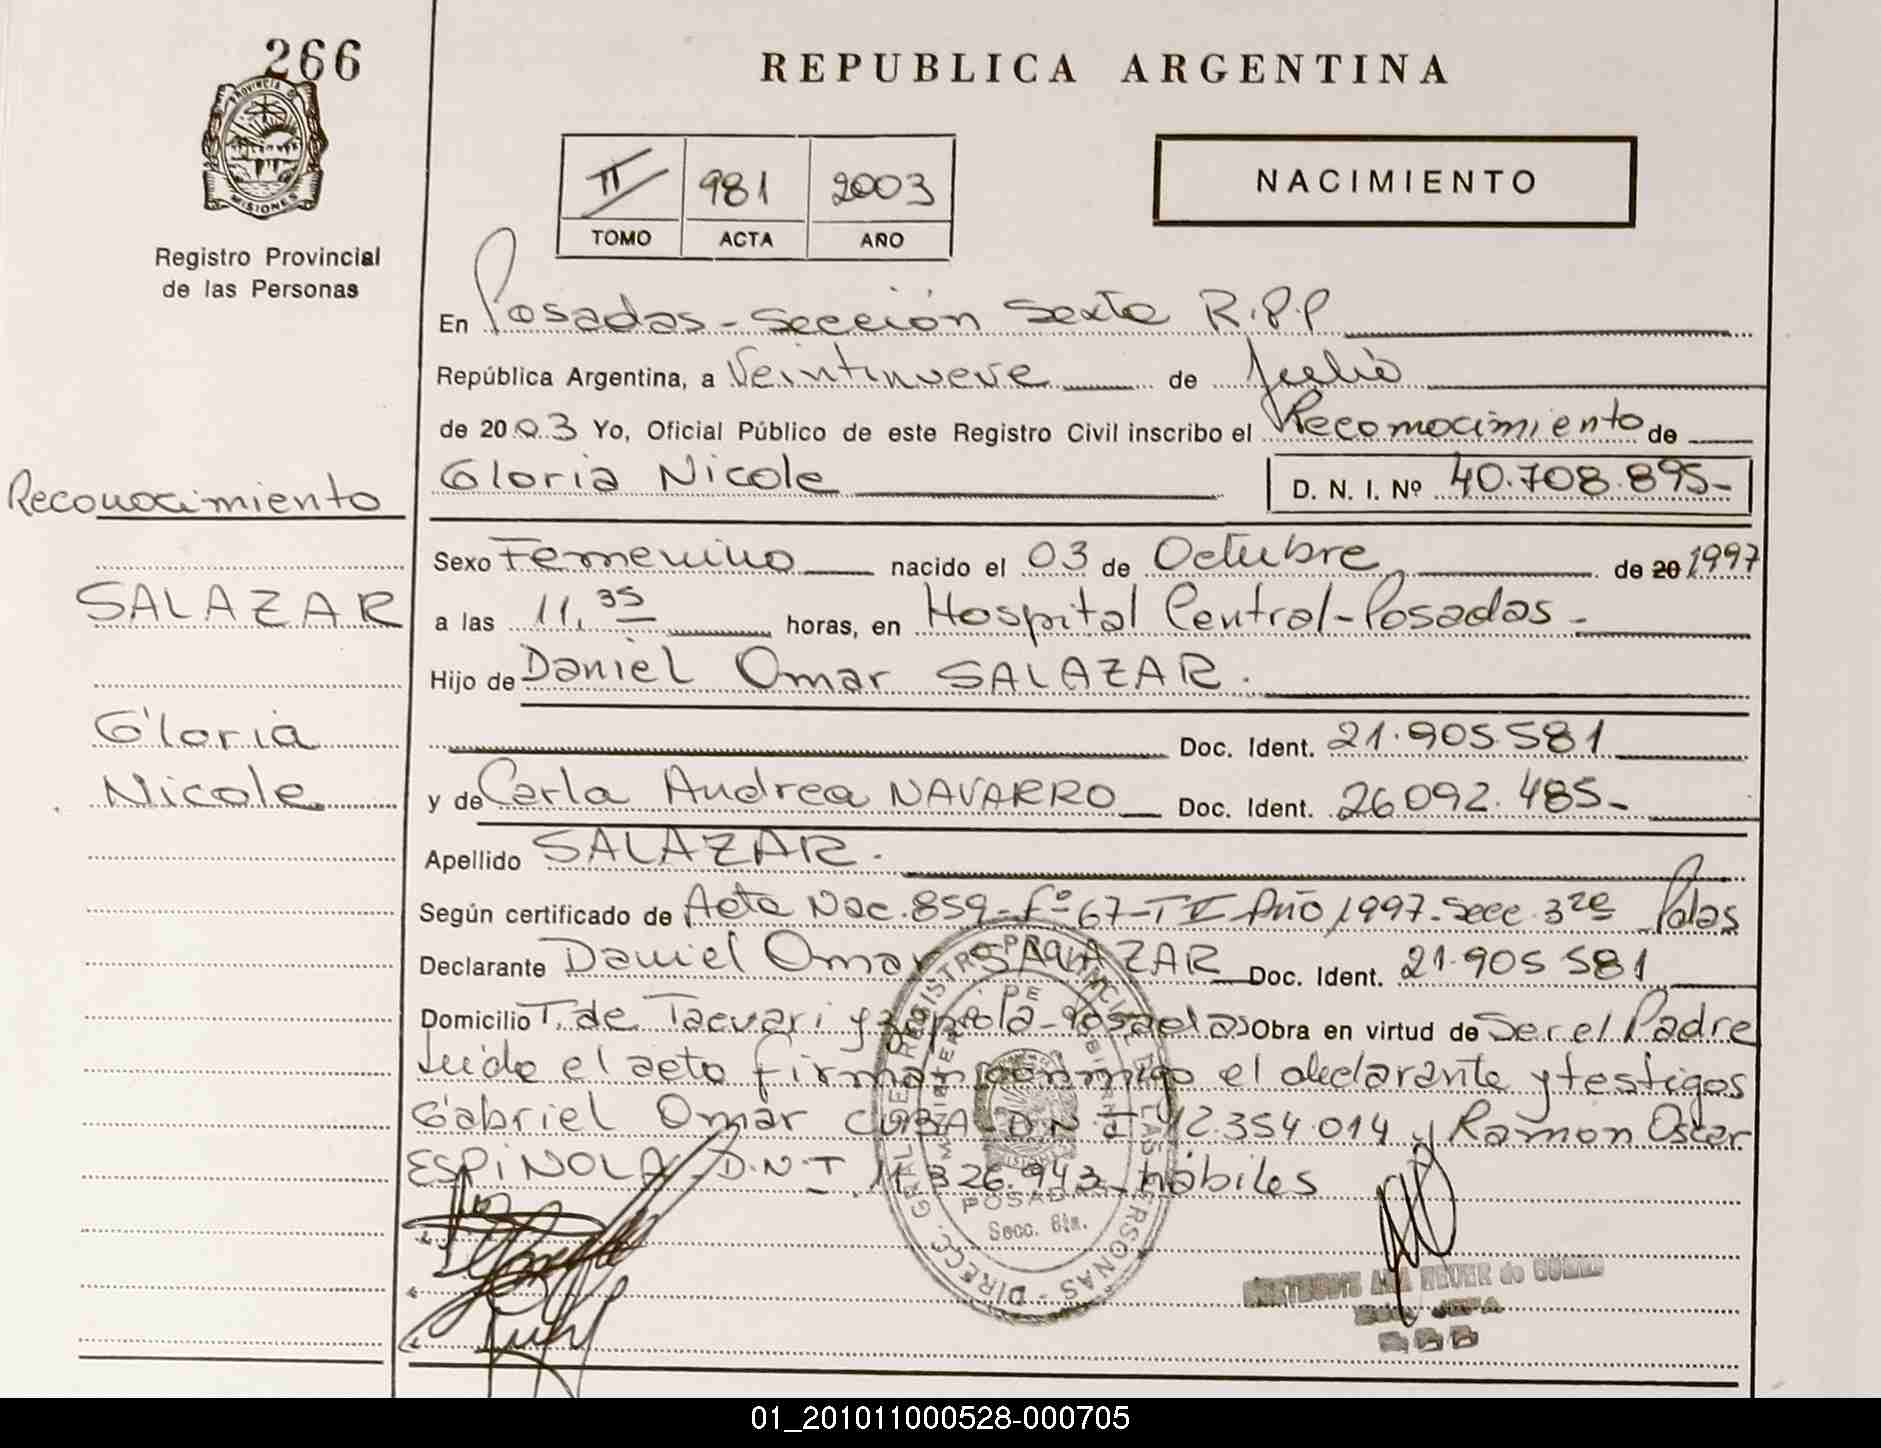 266
PROVINCIA D
MISIONES
Registro Provincial
de las Personas
REPUBLICA ARGENTINA
II 981 2003
TOMO ACTA AÑO
NACIMIENTO
En Posadas - Sección Sexta R.P.P
República Argentina, a Veintinueve de Julio
de 2003 Yo, Oficial Público de este Registro Civil inscribo el Reconocimiento de
Gloria Nicole D. N. I. Nº 40.708.895-
Reconocimiento
SALAZAR
Gloria
Nicole
Sexo Femenino nacido el 03 de Octubre de 20 1997
a las 11,35 horas, en Hospital Central - Posadas -
Hijo de Daniel Omar SALAZAR.
Doc. Ident. 21.905.581
y de Carla Andrea NAVARRO Doc. Ident. 26092.485-
Apellido SALAZAR.
Según certificado de Acta Nac. 859 - Fº 67 - T V Año 1997 - Secc. 3ra Pdas
Declarante Daniel Omar SALAZAR Doc. Ident. 21.905 581
Domicilio T. de Tacuari y Zapiola - Posadas Obra en virtud de Ser el Padre
Leída el acta firman conmigo el declarante y testigos
Gabriel Omar CUBA D.N.I 12.354.014 y Ramon Oscar
ESPINOLA - D.N.I 326.943 - hábiles
DIRECC. GRAL. DE REGISTRO PROVINCIAL DE LAS PERSONAS
DE
MISIONES
POSADAS
Secc. 6ta.
de
01_201011000528-000705